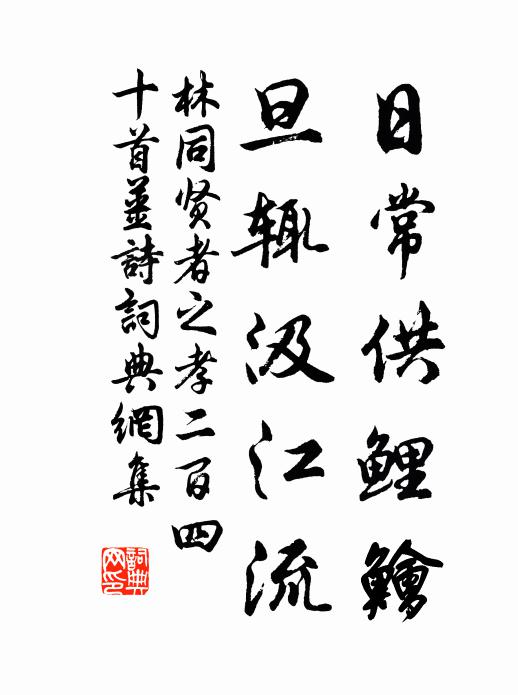 日常供鯉鱠
旦辄汲江流
林同贤者之孝二百四
十首姜詩詞典網集
詞典网印